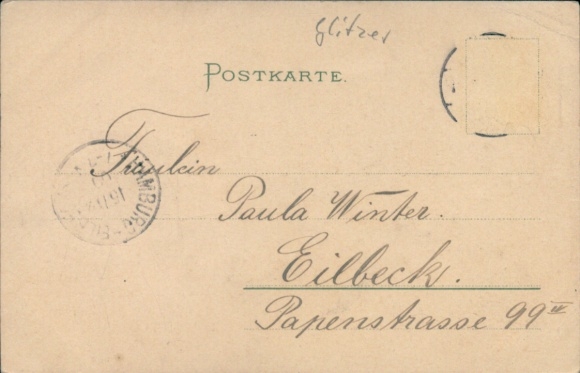 Glitzer
POSTKARTE.
Fräulein
Paula Winter.
Eilbeck.
Papenstrasse 99 III
HAMBURG